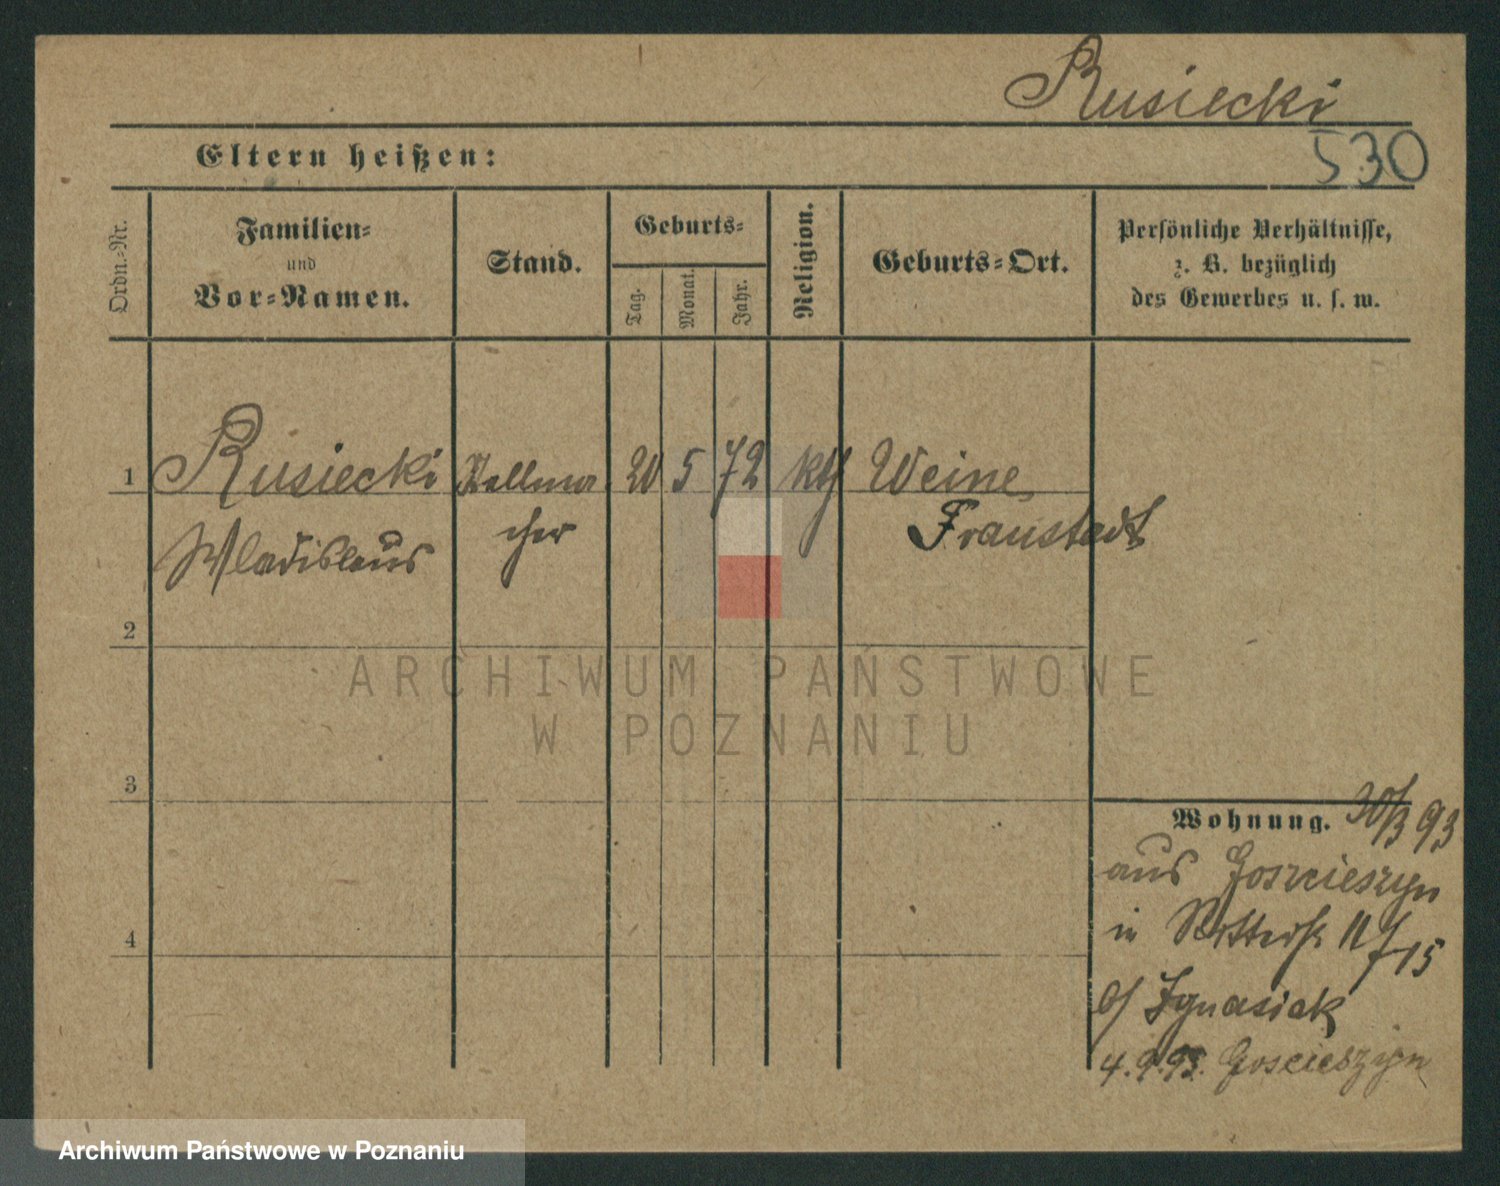 Rusiecki
530
Eltern heißen:
Ordn.-Nr.
Familien-
und
Vor-Namen.
Stand.
Geburts-
Tag.
Monat.
Jahr.
Religion.
Geburts-Ort.
Persönliche Verhältnisse,
z. B. bezüglich
des Gewerbes u. s. w.
1 Rusiecki 20 5 72 kth Weine
Wladislaus cher Fraustadt
2
3
4
Wohnung. 30/3 93
aus Goscieszyn
in 11/15
b/ Ignasiak
4.9.93. Goscieszyn
ARCHIWUM PAŃSTWOWE
W POZNANIU
Archiwum Państwowe w Poznaniu